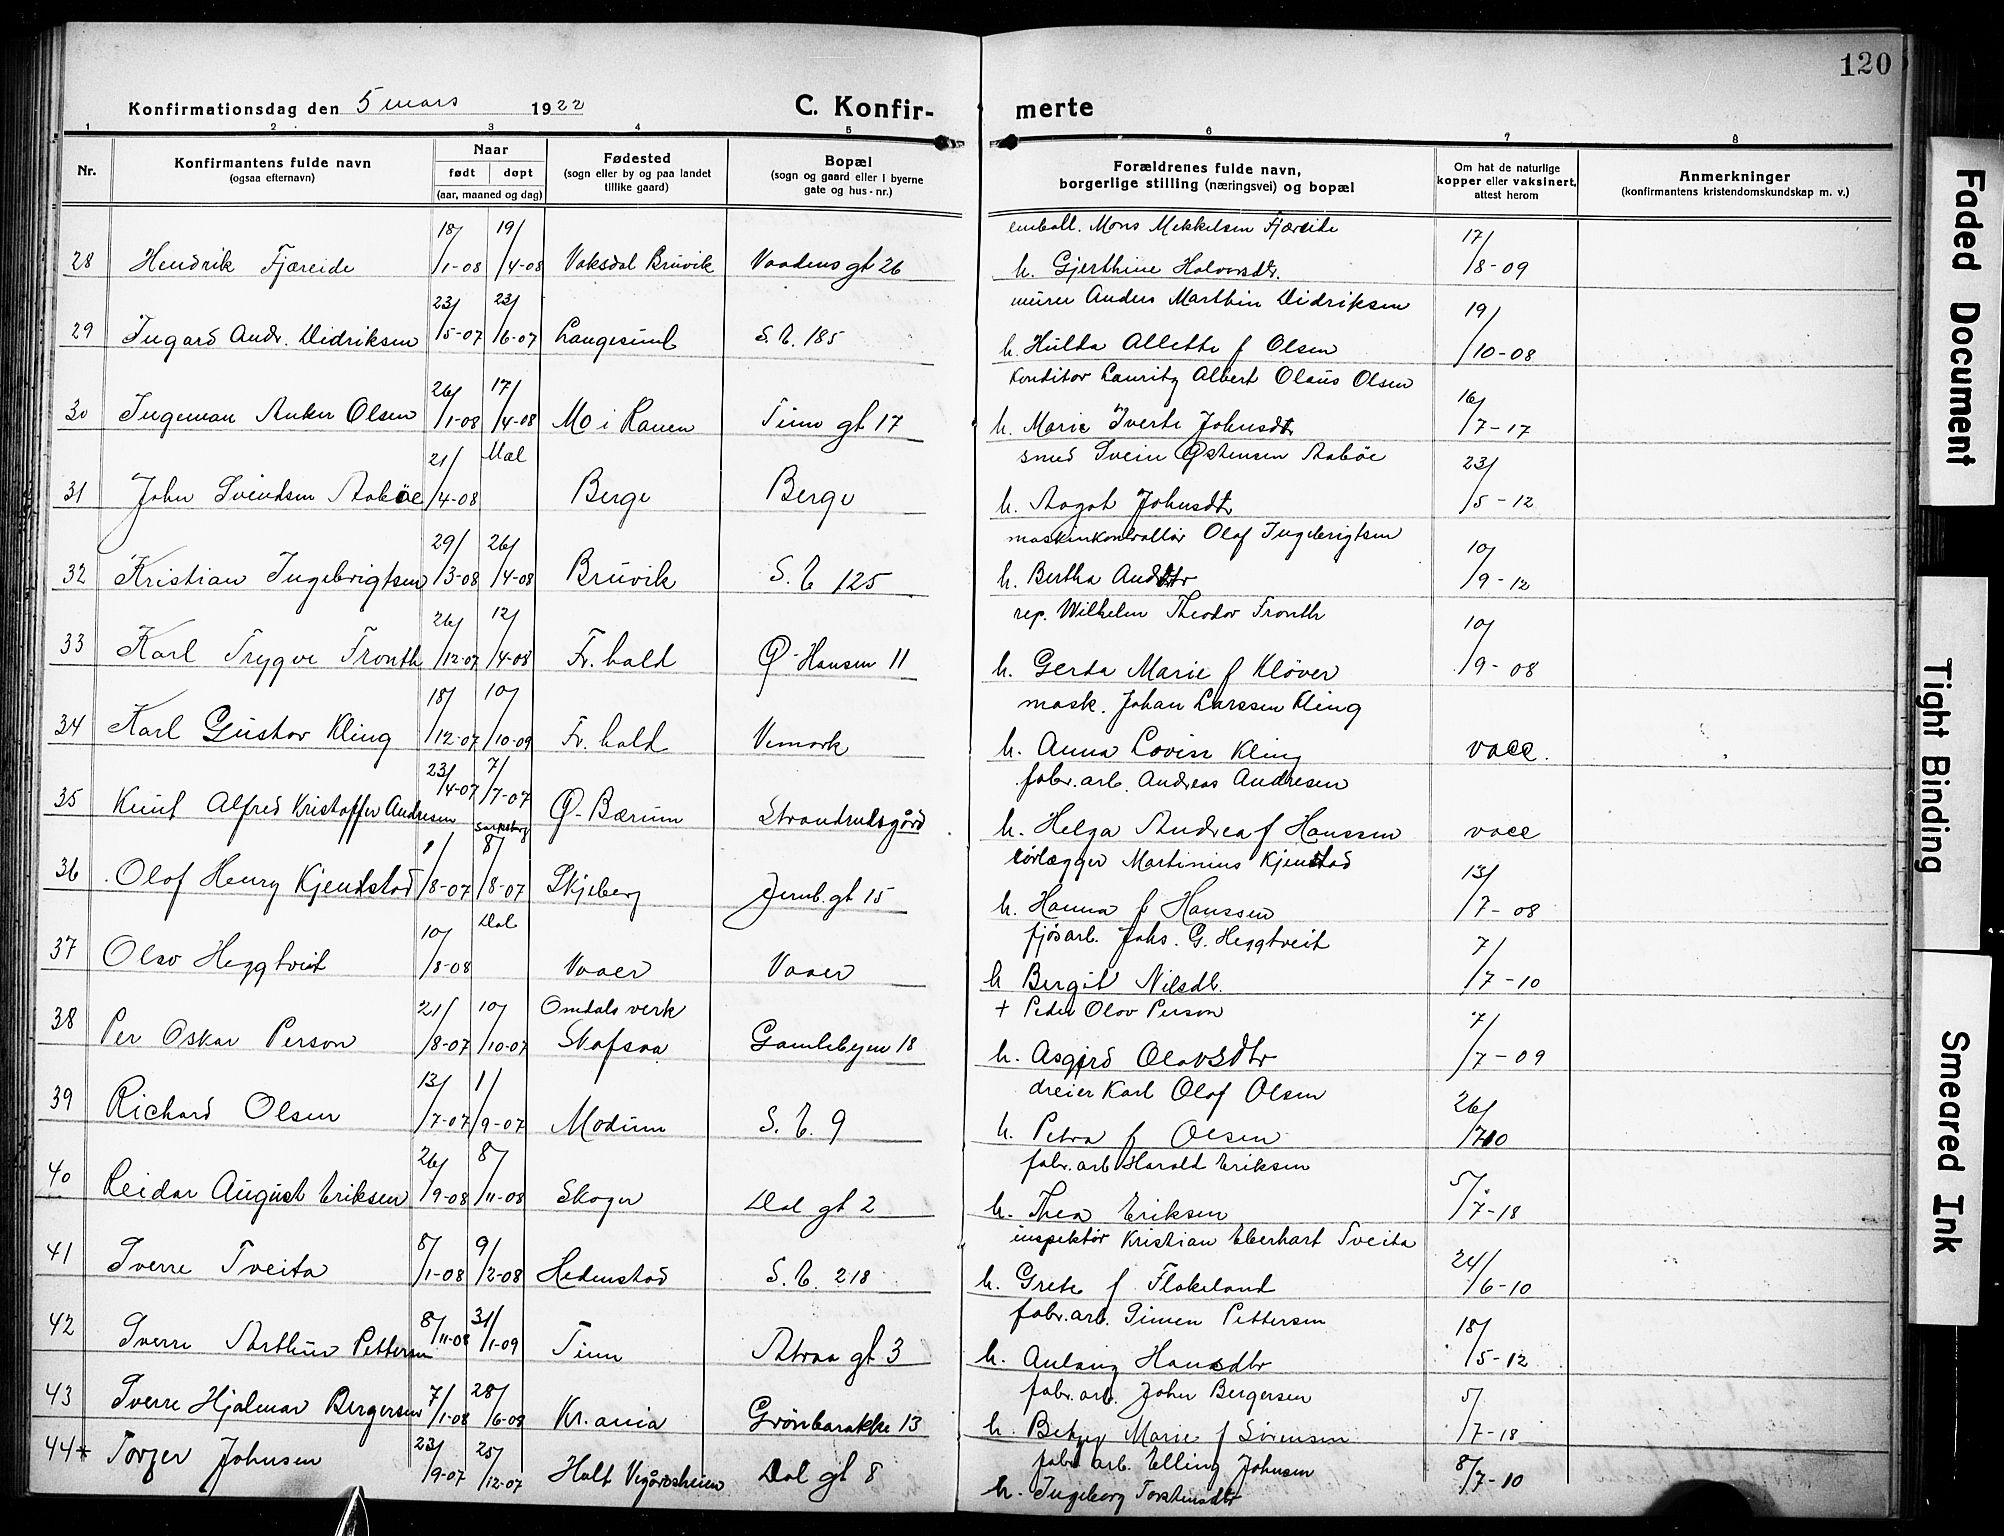 120
Konfirmationsdag den 5 mars 1922
C. Konfir-
merte
1 2 3 4 5 6 7 8
Nr.
Konfirmantens fulde navn
(ogsaa efternavn)
Naar
født døpt
(aar, maaned og dag)
Fødested
(sogn eller by og paa landet
tillike gaard)
Bopæl
(sogn og gaard eller i byerne
gate og hus-nr.)
Forældrenes fulde navn,
borgerlige stilling (næringsvei) og bopæl
Om hat de naturlige
kopper eller vaksinert,
attest herom
Anmerkninger
(konfirmantens kristendomskundskap m. v.)
emball. Mons Mekkelsen Fjæreide
28 Hendrik Fjæreide 18/1-08 19/4-08 Vaksdal Bruvik Vaadens gt 26 h. Gjerthine Halvorsdtr. 17/8-09
murer Anders Marthin Didriksen
29 Ingard Andr. Didriksen 23/5-07 23/6-07 Langesund S.E. 185 h. Hulda Alette f Olsen 19/10-08
konditor Lauritz Albert Olaus Olsen
30 Ingeman Anker Olsen 26/1-08 17/4-08 Mo i Ranen Tinn gt 17 h. Marie Iverte Johnsdtr 16/7-17
smed Svein Østensen Aabøe
31 John Svendsen Aabøe 21/4-08 Mæl Berge Berge h. Aagot Johnsdtr 23/5-12
maskinkontrollør Olaf Ingebrigtsen
32 Kristian Ingebrigtsen 29/3-08 26/4-08 Bruvik S.E 125 h. Bertha Anddtr 10/9-12
rep. Wilhelm Theodor Fronth
33 Karl Trygve Fronth 26/12-07 12/4-08 Fr.hald Ø-Hansen 11 h. Gerda Marie f Kløver 10/9-08
mask. Johan Larssen Kling
34 Karl Gustav Kling 18/12-07 10/10-09 Fr.hald Vemork h. Anna Lovise Kling vacc.
fabr.arb. Andreas Andresen
35 Knut Alfred Kristoffer Andresen 23/4-07 7/7-07 Ø-Bærum Strandrudsgård h. Helga Andrea f Hanssen vacc
rørlægger Martinius Kjendstad
36 Olaf Henry Kjendstad 1/8-07 Sarpsborg 8/8-07 Skjeberg Jernb.gt 15 h. Hanna f Hanssen 13/7-08
fjøsarb. Johs. G. Heggtveit
37 Olav Heggtveit 10/8-08 Dal Vaaer Vaaer h Bergit Nilsdt. 7/7-10
+ Peder Olov Person
38 Per Oskar Person 21/8-07 10/10-07 Omdals verk Skafsaa Gamlebyen 18 h. Asgjerd Olavsdtr 7/7-09
dreier Karl Olaf Olsen
39 Richard Olsen 13/7-07 1/9-07 Modum S.E. 9 h. Petra f Olsen 26/7 10
fabr.arb Harald Eriksen
40 Reidar August Eriksen 26/9-08 8/11-08 Skoger Dal gt 2 h. Thea Eriksen 5/7-18
inspektør Kristian Eberhart Tveita
41 Sverre Tveita 8/1-08 9/2-08 Hedenstad S.E. 218 h. Grete f Flakeland 24/6-10
fabr.arb. Simen Pettersen
42 Sverre Arthur Pettersen 8/11-08 31/1-09 Tinn Atraa gt 3 h. Anlaug Hansdtr 18/5-12
fabr.arb. John Bergersen
43 Sverre Hjalmar Bergersen 7/1-08 28/6-08 Kr.ania Grønbarakke 13 h. Betzy Marie f Sørensen 5/7-18
fabr arb. Elling Johnsen
44* Torger Johnsen 23/9-07 25/12-07 Holt Vegårdsheien Dal gt 8 h. Ingeborg Torstensdtr 8/7-10
Faded Document
Tight Binding
Smeared Ink